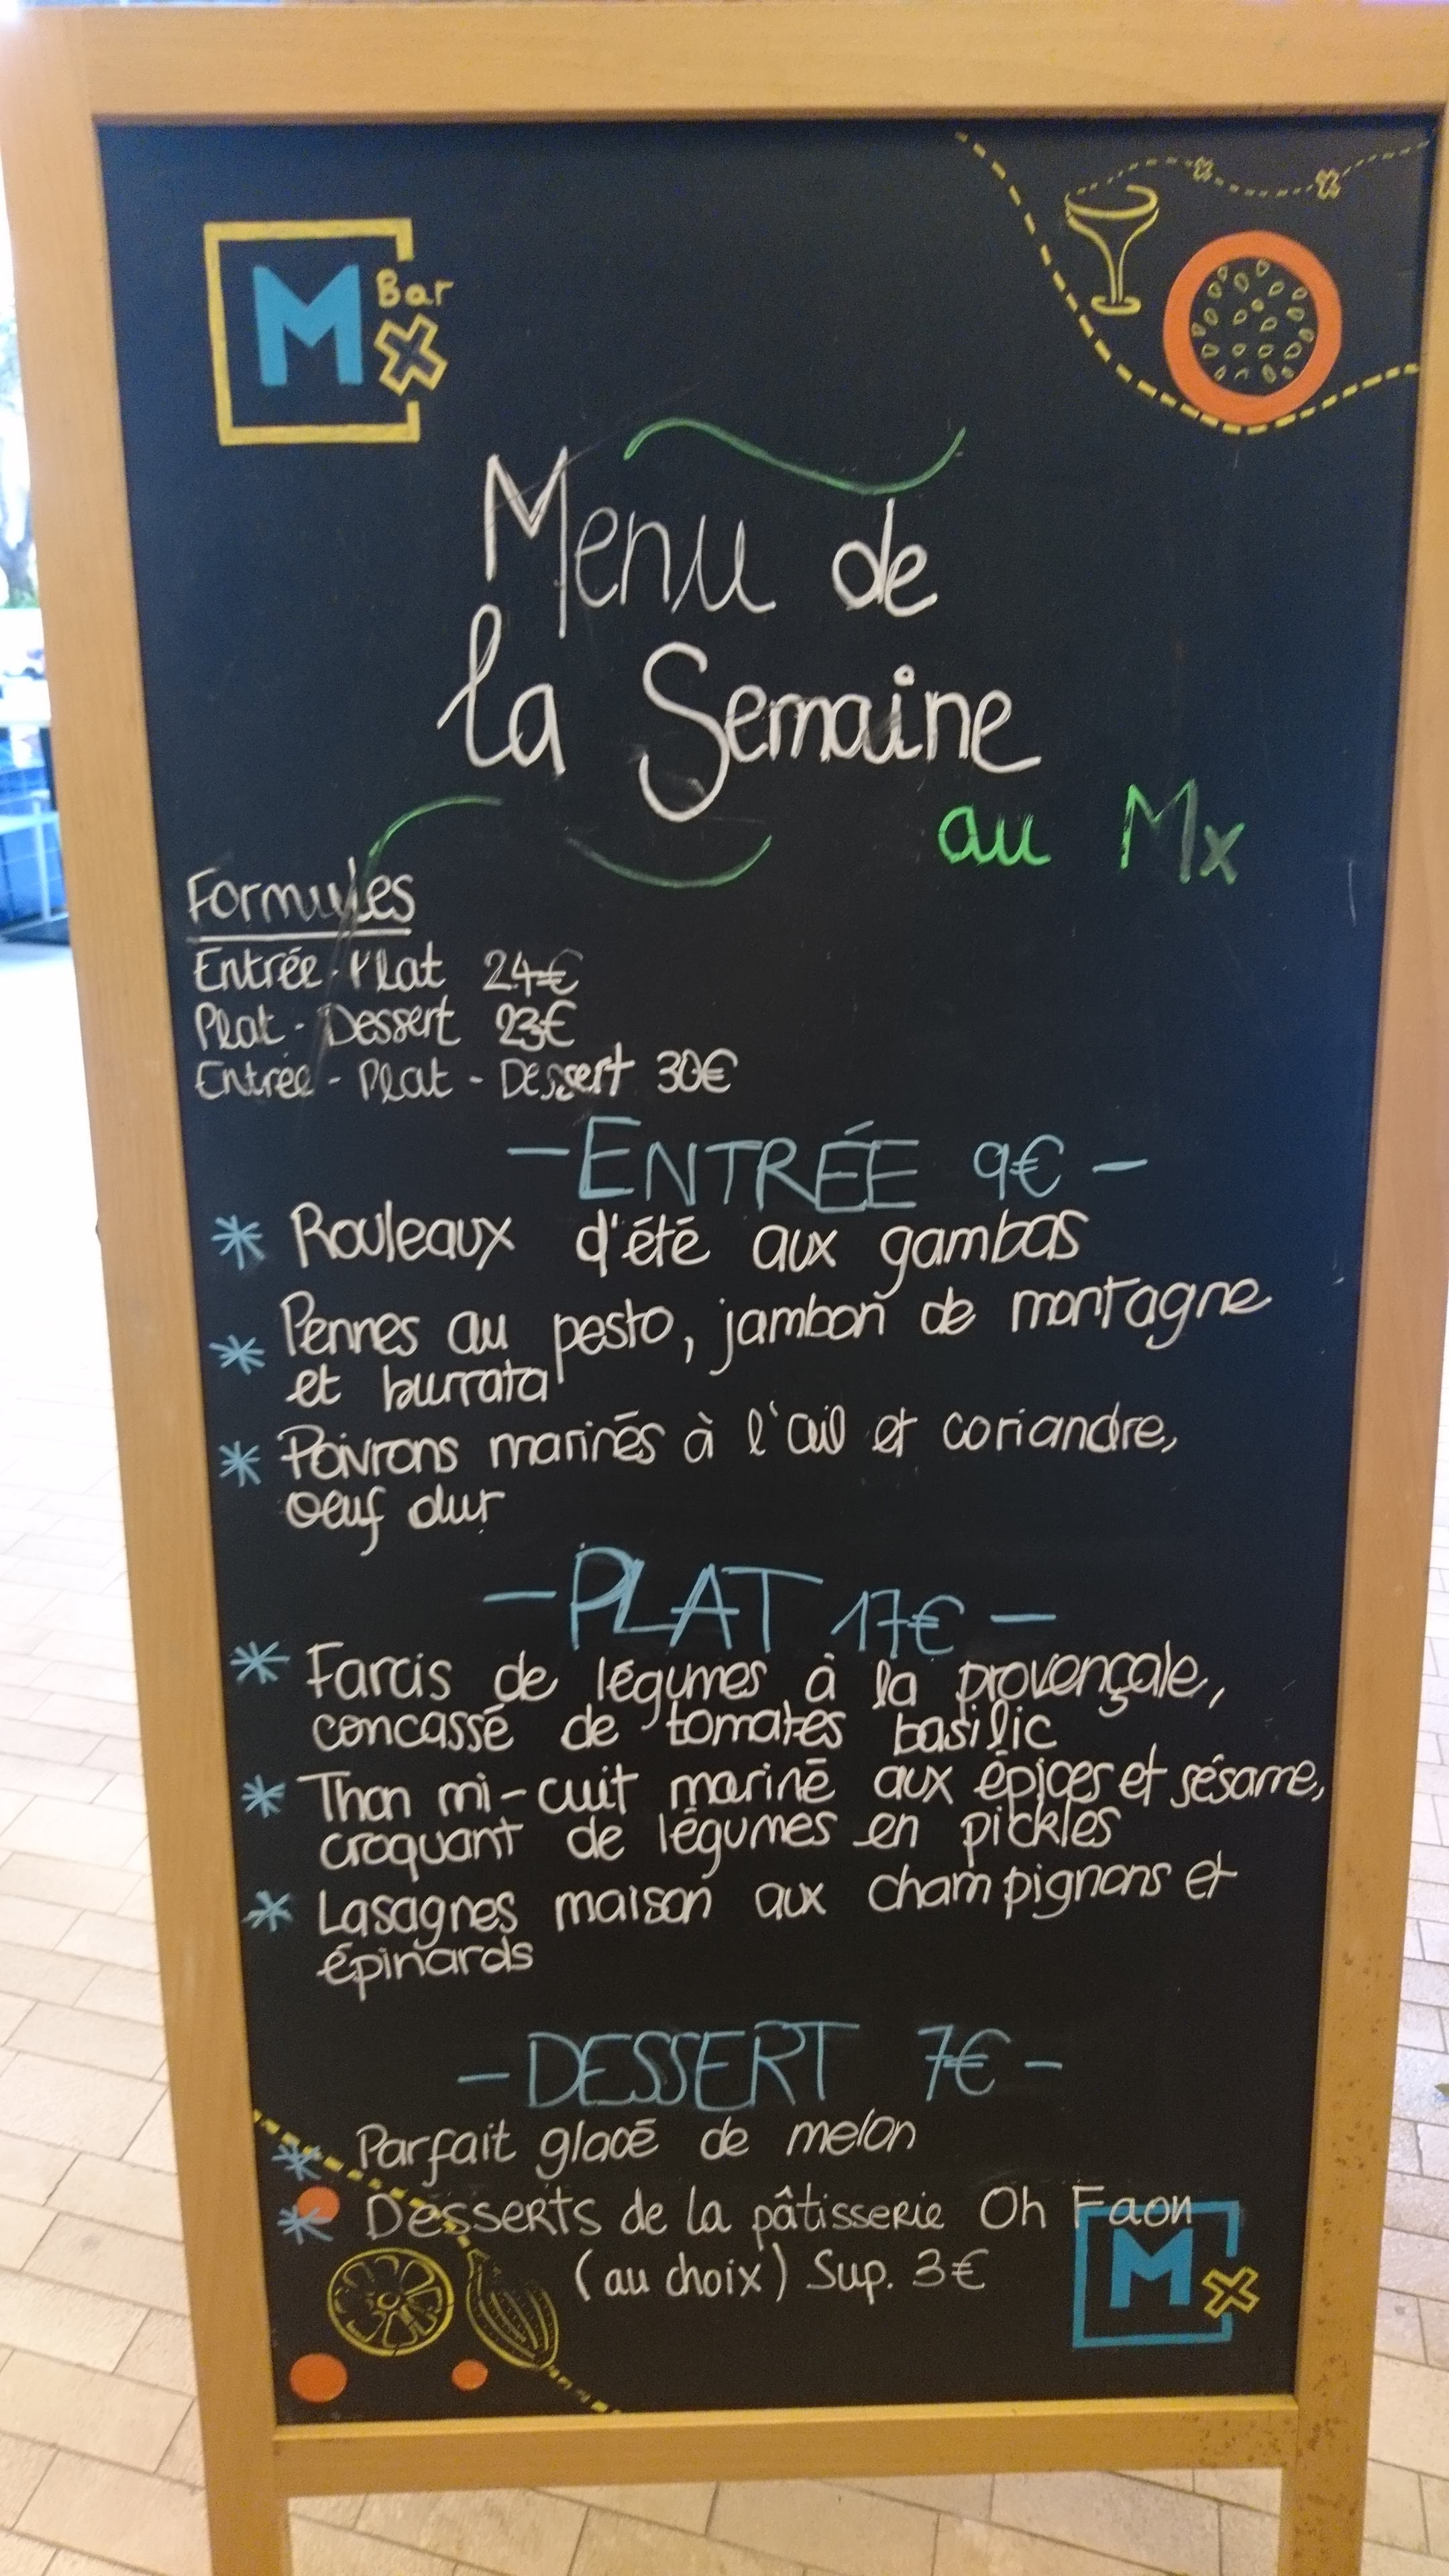 M Bar x
Menu de
la Semaine
au Mx
Formules
Entrée - Plat 24€
Plat - Dessert 23€
Entrée - Plat - Dessert 30€
- ENTRÉE 9€ -
* Rouleaux d'été aux gambas
* Pennes au pesto, jambon de montagne
et burrata
* Poivrons marinés à l'ail et coriandre,
oeuf dur
- PLAT 17€ -
* Farcis de légumes à la provençale,
concassé de tomates basilic
* Thon mi-cuit mariné aux épices et sésame,
croquant de légumes en pickles
* Lasagnes maison aux champignons et
épinards
- DESSERT 7€ -
* Parfait glacé de melon
* Desserts de la pâtisserie Oh Faon
(au choix) Sup. 3€
Mx